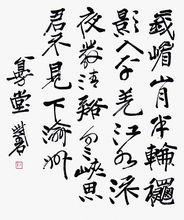 峨嵋山月半輪龝
影入平羌江水流
夜發清谿向三峽思
君不見下渝州